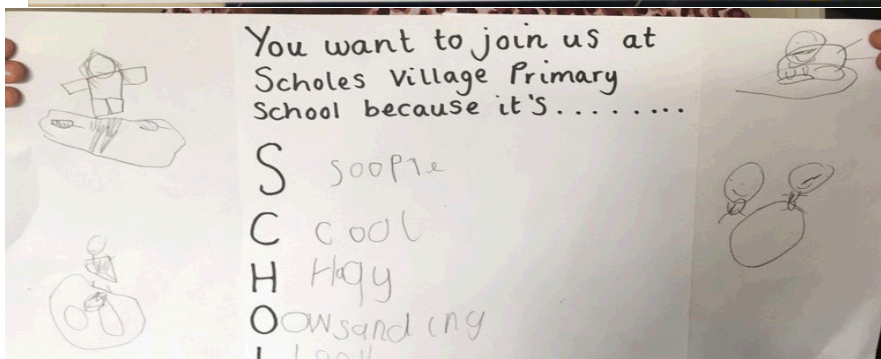 You want to join us at
Scholes Village Primary
School because it's........
S soopre
C cool
H Hapy
O owsanding